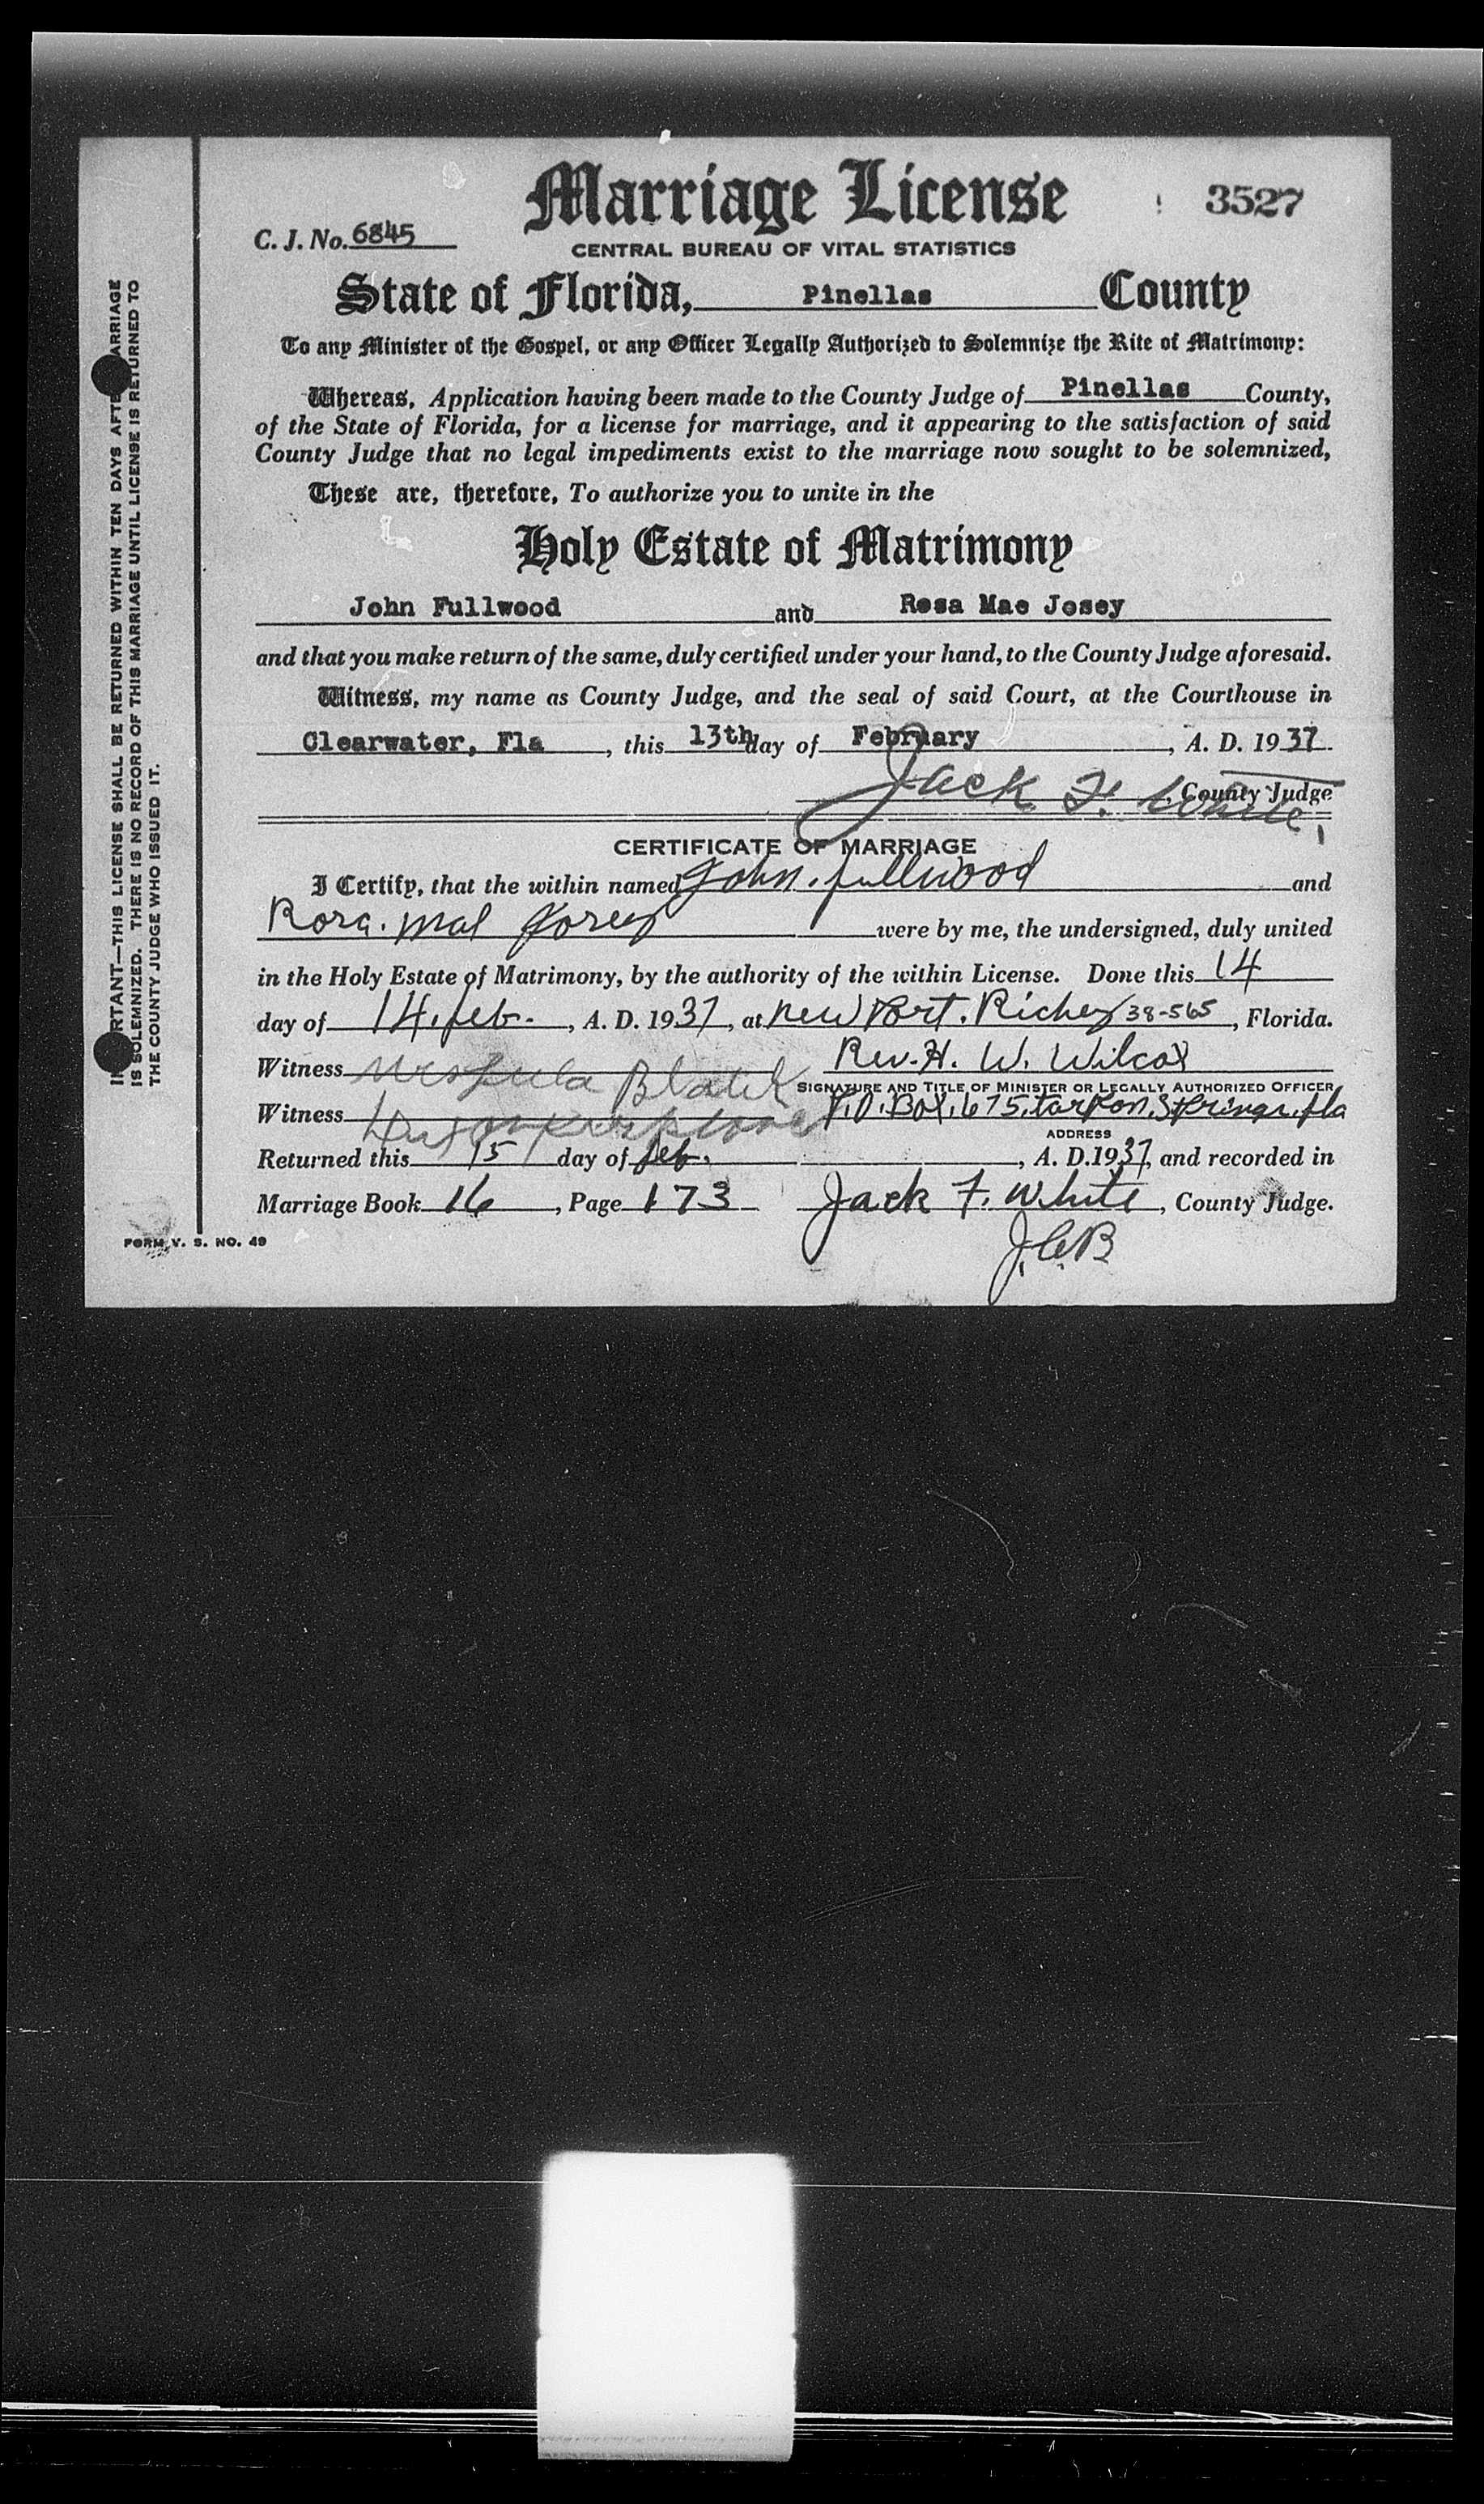 Marriage License
3527
C. J. No. 6845
CENTRAL BUREAU OF VITAL STATISTICS
State of Florida, Pinellas County
To any Minister of the Gospel, or any Officer Legally Authorized to Solemnize the Rite of Matrimony:
Whereas, Application having been made to the County Judge of Pinellas County,
of the State of Florida, for a license for marriage, and it appearing to the satisfaction of said
County Judge that no legal impediments exist to the marriage now sought to be solemnized,
These are, therefore, To authorize you to unite in the
Holy Estate of Matrimony
John Fullwood and Rosa Mae Josey
and that you make return of the same, duly certified under your hand, to the County Judge aforesaid.
Witness, my name as County Judge, and the seal of said Court, at the Courthouse in
Clearwater, Fla, this 13th day of February, A. D. 1937
Jack F. White, County Judge
CERTIFICATE OF MARRIAGE
I Certify, that the within named John. fullwood and
Rosa. Mae Josey were by me, the undersigned, duly united
in the Holy Estate of Matrimony, by the authority of the within License. Done this 14
day of 14. feb., A. D. 1937, at New Port. Richey 38-565, Florida.
Witness Black Rev. H. W. Wilcox
SIGNATURE AND TITLE OF MINISTER OR LEGALLY AUTHORIZED OFFICER
Witness P.O. Box. 675, tarpon. Springs. fla
ADDRESS
Returned this 15 day of feb., A. D. 1937, and recorded in
Marriage Book 16, Page 173 Jack F. White, County Judge.
J.C.B
FORM V. S. NO. 49
IMPORTANT—THIS LICENSE SHALL BE RETURNED WITHIN TEN DAYS AFTER MARRIAGE
IS SOLEMNIZED. THERE IS NO RECORD OF THIS MARRIAGE UNTIL LICENSE IS RETURNED TO
THE COUNTY JUDGE WHO ISSUED IT.